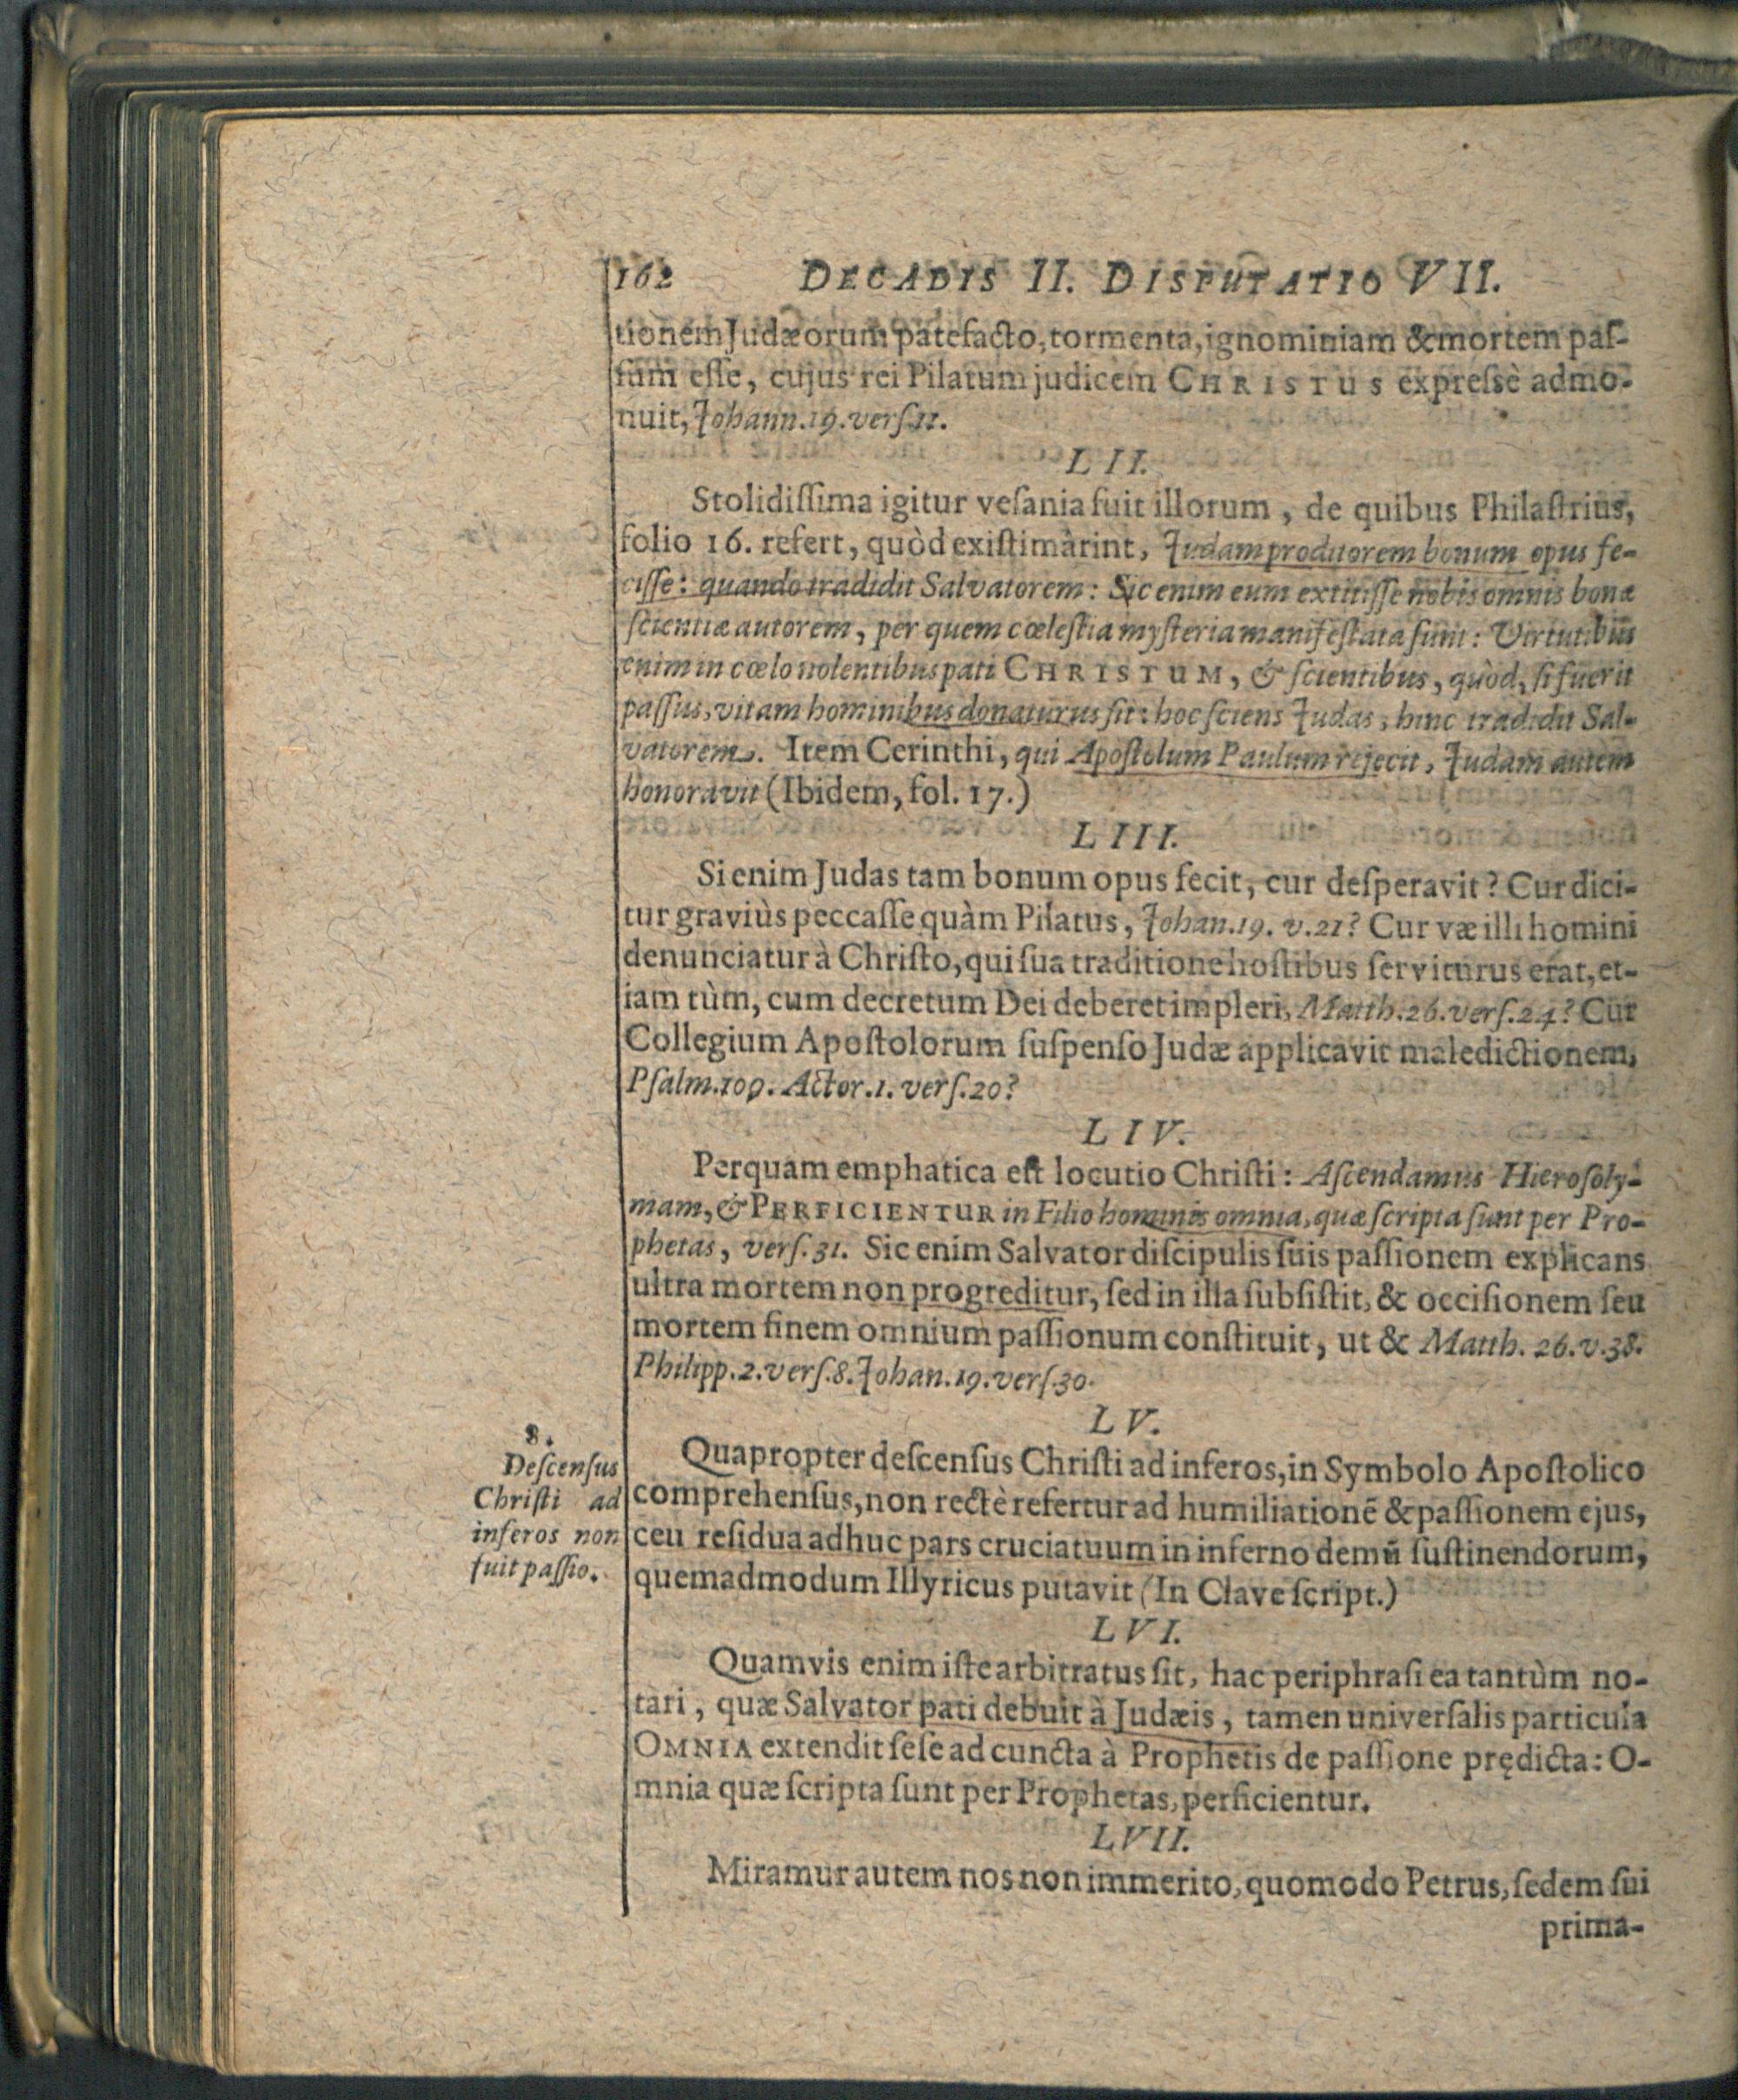 162 DECADIS II. DISPUTATIO VII.
tionem Judæorum patefacto, tormenta, ignominiam & mortem paſ-
ſum eſſe, cujus rei Pilatum judicem CHRISTUS expreſsè admo-
nuit, Johann. 19. verſ. 11.
LII.
Stolidiſſima igitur veſania fuit illorum, de quibus Philaſtrius,
folio 16. refert, quòd exiſtimàrint, Judam proditorem bonum opus fe-
ciſſe: quando tradidit Salvatorem: Sic enim eum extitiſſe nobis omnis bonæ
ſcientiæ autorem, per quem cœleſtia myſteria manifeſtata ſunt: Virtutibus
enim in cœlo nolentibus pati CHRISTUM, & ſcientibus, quòd, ſi fuerit
paſſus, vitam hominibus donaturus ſit: hoc ſciens Judas, hinc tradidit Sal-
vatorem. Item Cerinthi, qui Apoſtolum Paulum rejecit, Judam autem
honoravit (Ibidem, fol. 17.)
LIII.
Si enim Judas tam bonum opus fecit, cur deſperavit? Cur dici-
tur graviùs peccaſſe quàm Pilatus, Johan. 19. v. 21? Cur væ illi homini
denunciatur à Chriſto, qui ſua traditione hoſtibus ſerviturus erat, et-
iam tùm, cum decretum Dei deberet impleri, Matth. 26. verſ. 24? Cur
Collegium Apoſtolorum ſuſpenſo Judæ applicavit maledictionem,
Pſalm. 109. Actor. 1. verſ. 20?
LIV.
Perquam emphatica eſt locutio Chriſti: Aſcendamus Hieroſoly-
mam, & PERFICIENTUR in Filio hominis omnia, quæ ſcripta ſunt per Pro-
phetas, verſ. 31. Sic enim Salvator diſcipulis ſuis paſſionem explicans
ultra mortem non progreditur, ſed in illa ſubſiſtit, & occiſionem ſeu
mortem finem omnium paſſionum conſtituit, ut & Matth. 26. v. 38.
Philipp. 2. verſ. 8. Johan. 19. verſ. 30.
LV.
8.
Deſcenſus
Chriſti ad
inferos non
fuit paſſio.
Quapropter deſcenſus Chriſti ad inferos, in Symbolo Apoſtolico
comprehenſus, non rectè refertur ad humiliationē & paſſionem ejus,
ceu reſidua adhuc pars cruciatuum in inferno demū ſuſtinendorum,
quemadmodum Illyricus putavit (In Clave ſcript.)
LVI.
Quamvis enim iſte arbitratus ſit, hac periphraſi ea tantùm no-
tari, quæ Salvator pati debuit à Judæis, tamen univerſalis particula
OMNIA extendit ſeſe ad cuncta à Prophetis de paſſione prędicta: O-
mnia quæ ſcripta ſunt per Prophetas, perficientur.
LVII.
Miramur autem nos non immerito, quomodo Petrus, ſedem ſui
prima-